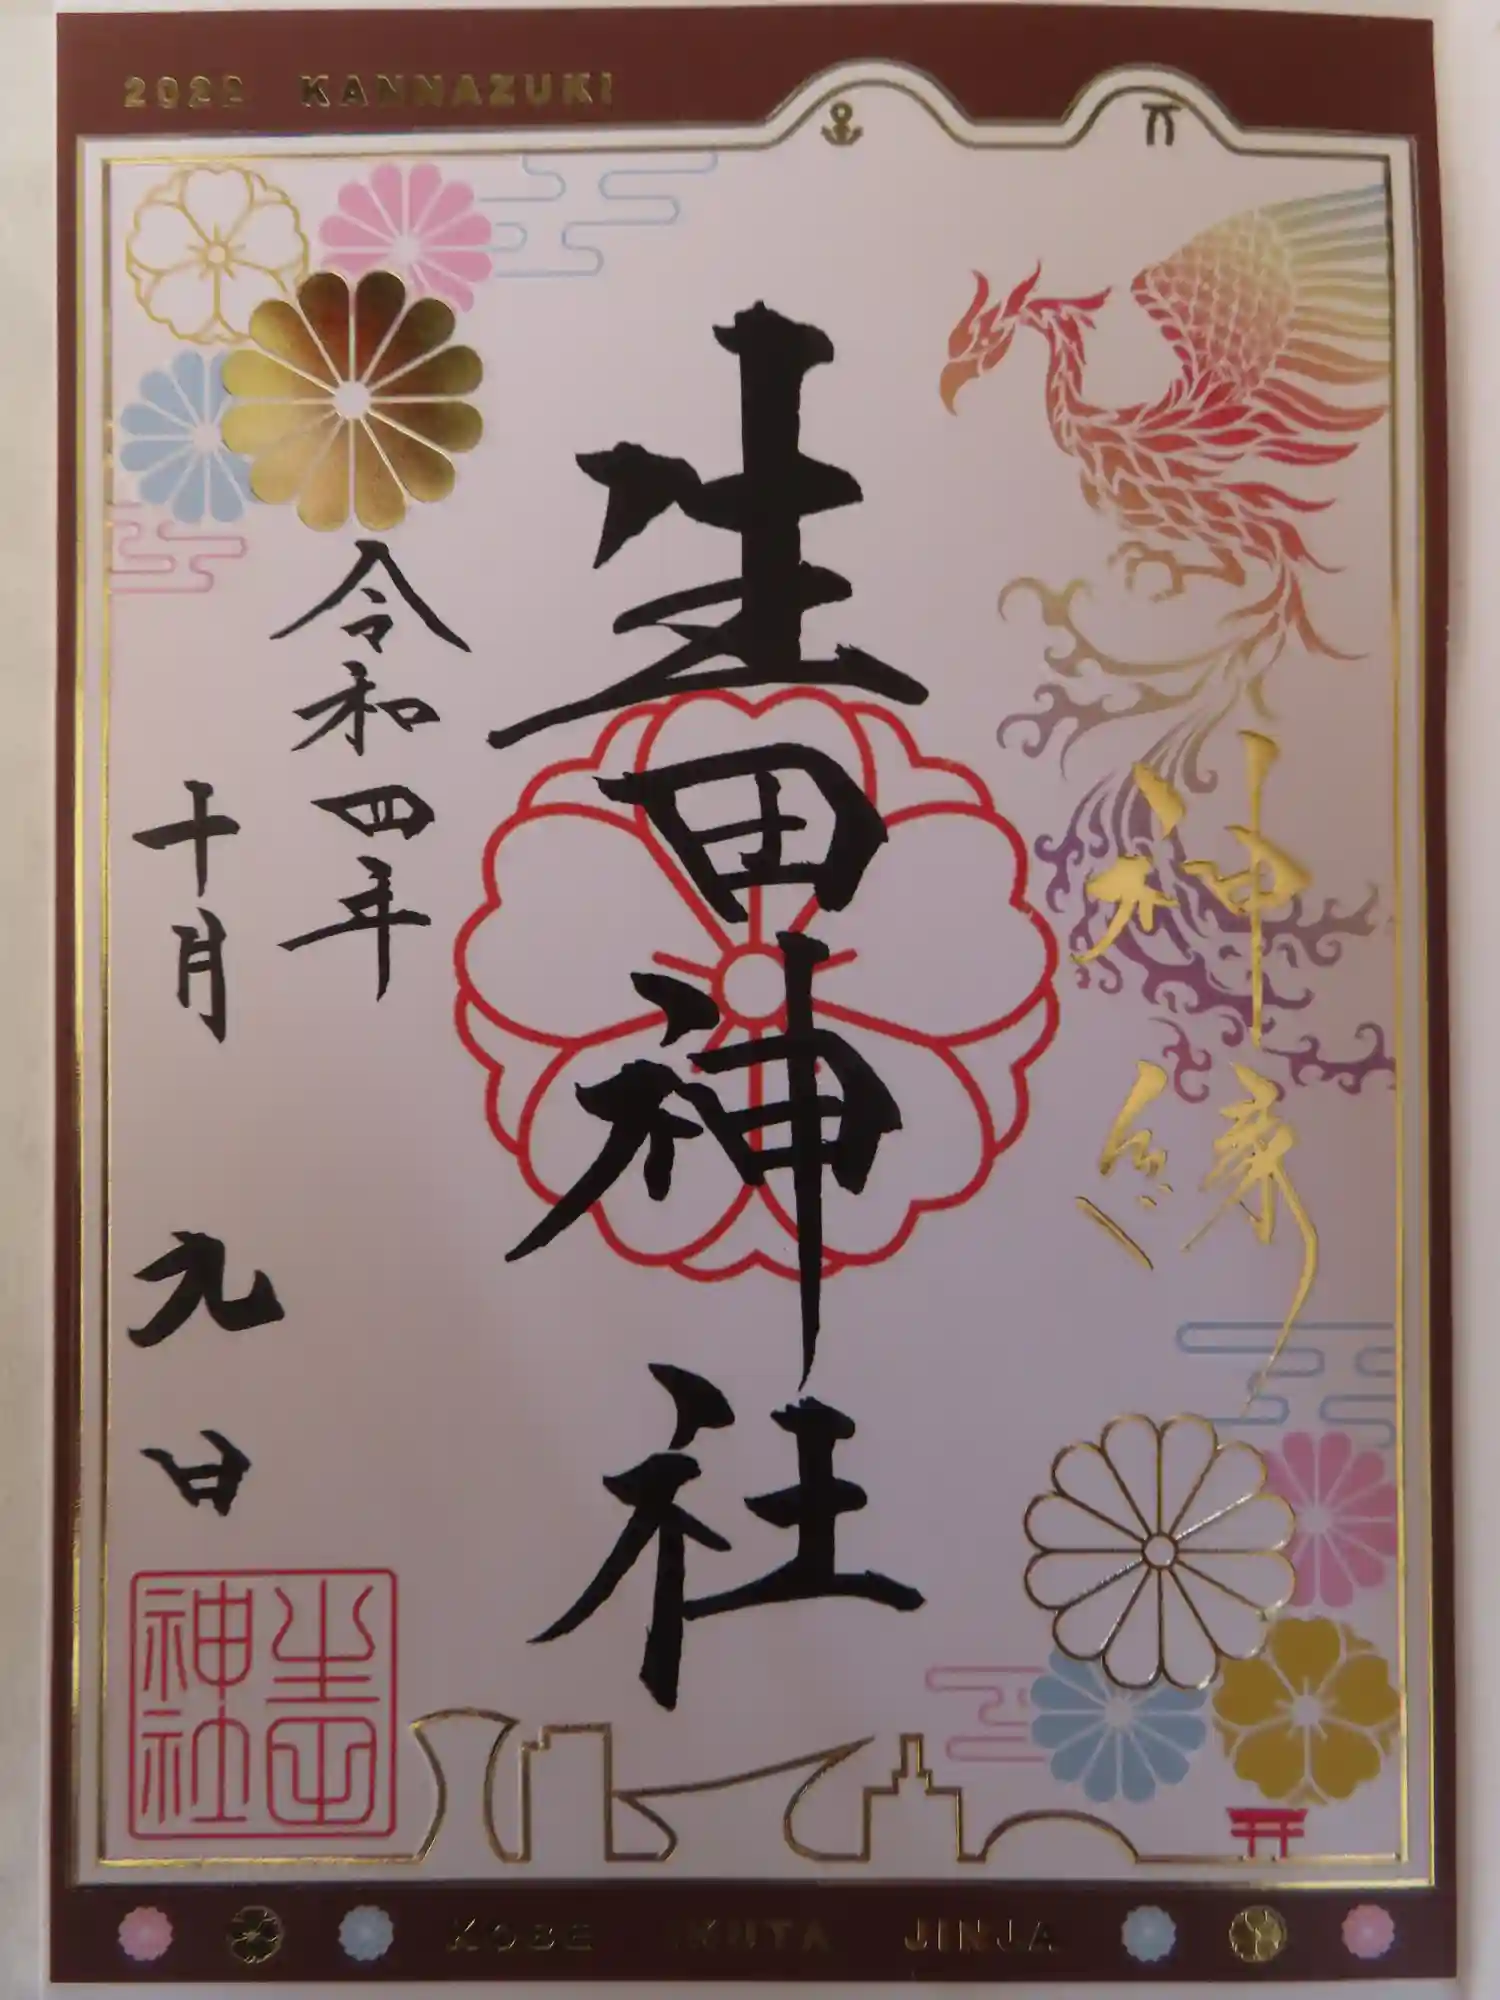 2022 KANNAZUKI
神縁
生田神社
令和四年
十月九日
生田
神社
KOBE IKUTA JINJA